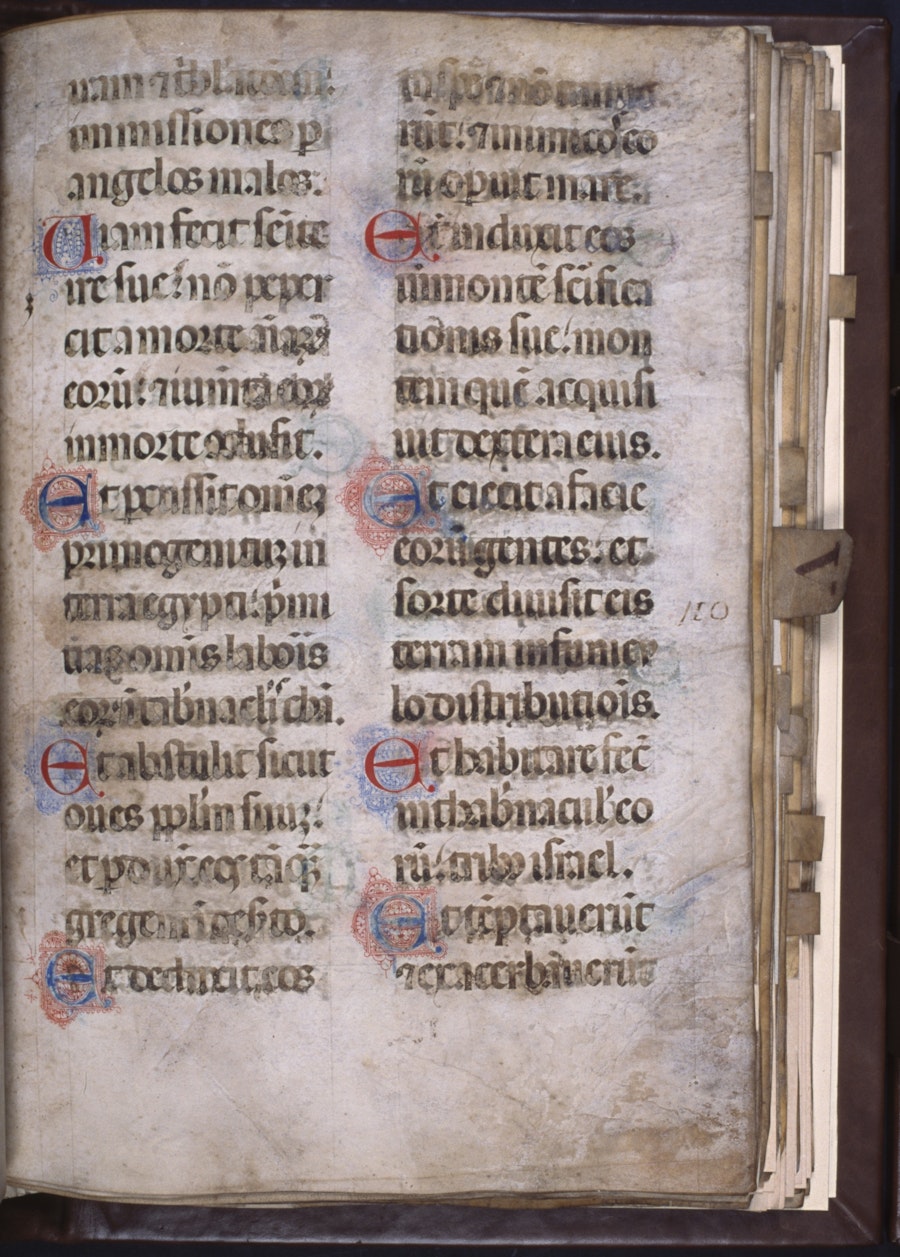 iram ⁊ tbl'atōem:
immissiones ꝑ
angelos malos:
Uiam fecit sēite
ire sue: nō peper
cit a morte aīabꝫ
eorū: ⁊ iumta eoꝝ
in morte ꝯclusit.
Et ꝑcussit omēꝫ
primogenituꝫ in
terra egypti: pͥmi
tias omīs laboīs
eoꝝ ī tab̄naclīs chā.
Et abstulit sicut
oues pplm suuꝫ:
et ꝑduxit eos tāqꝫ
gregem ī deſ̄to.
Et deduxit eos
in spe ⁊ nō timue
rūt: ⁊ inimicos eo
rū oꝑuit mare.
Et induxit eos
in montē scīfica
tiōnis sue: mon
tem quē acquisi
uit dextera eius.
Et eiecit a facie
eorū gentes: et
sorte diuisit eis
terram in funicu
lo distributiōis.
Et habitare fec̄
in thab̄nacul' eo
rū: tribꝫ israel.
Et tēptauerūt
⁊ exacerbauerūt
150
A